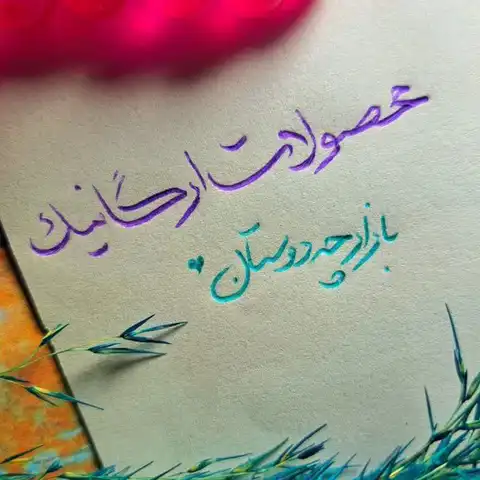 محصولات ارگانیک
بازارچه دوستان